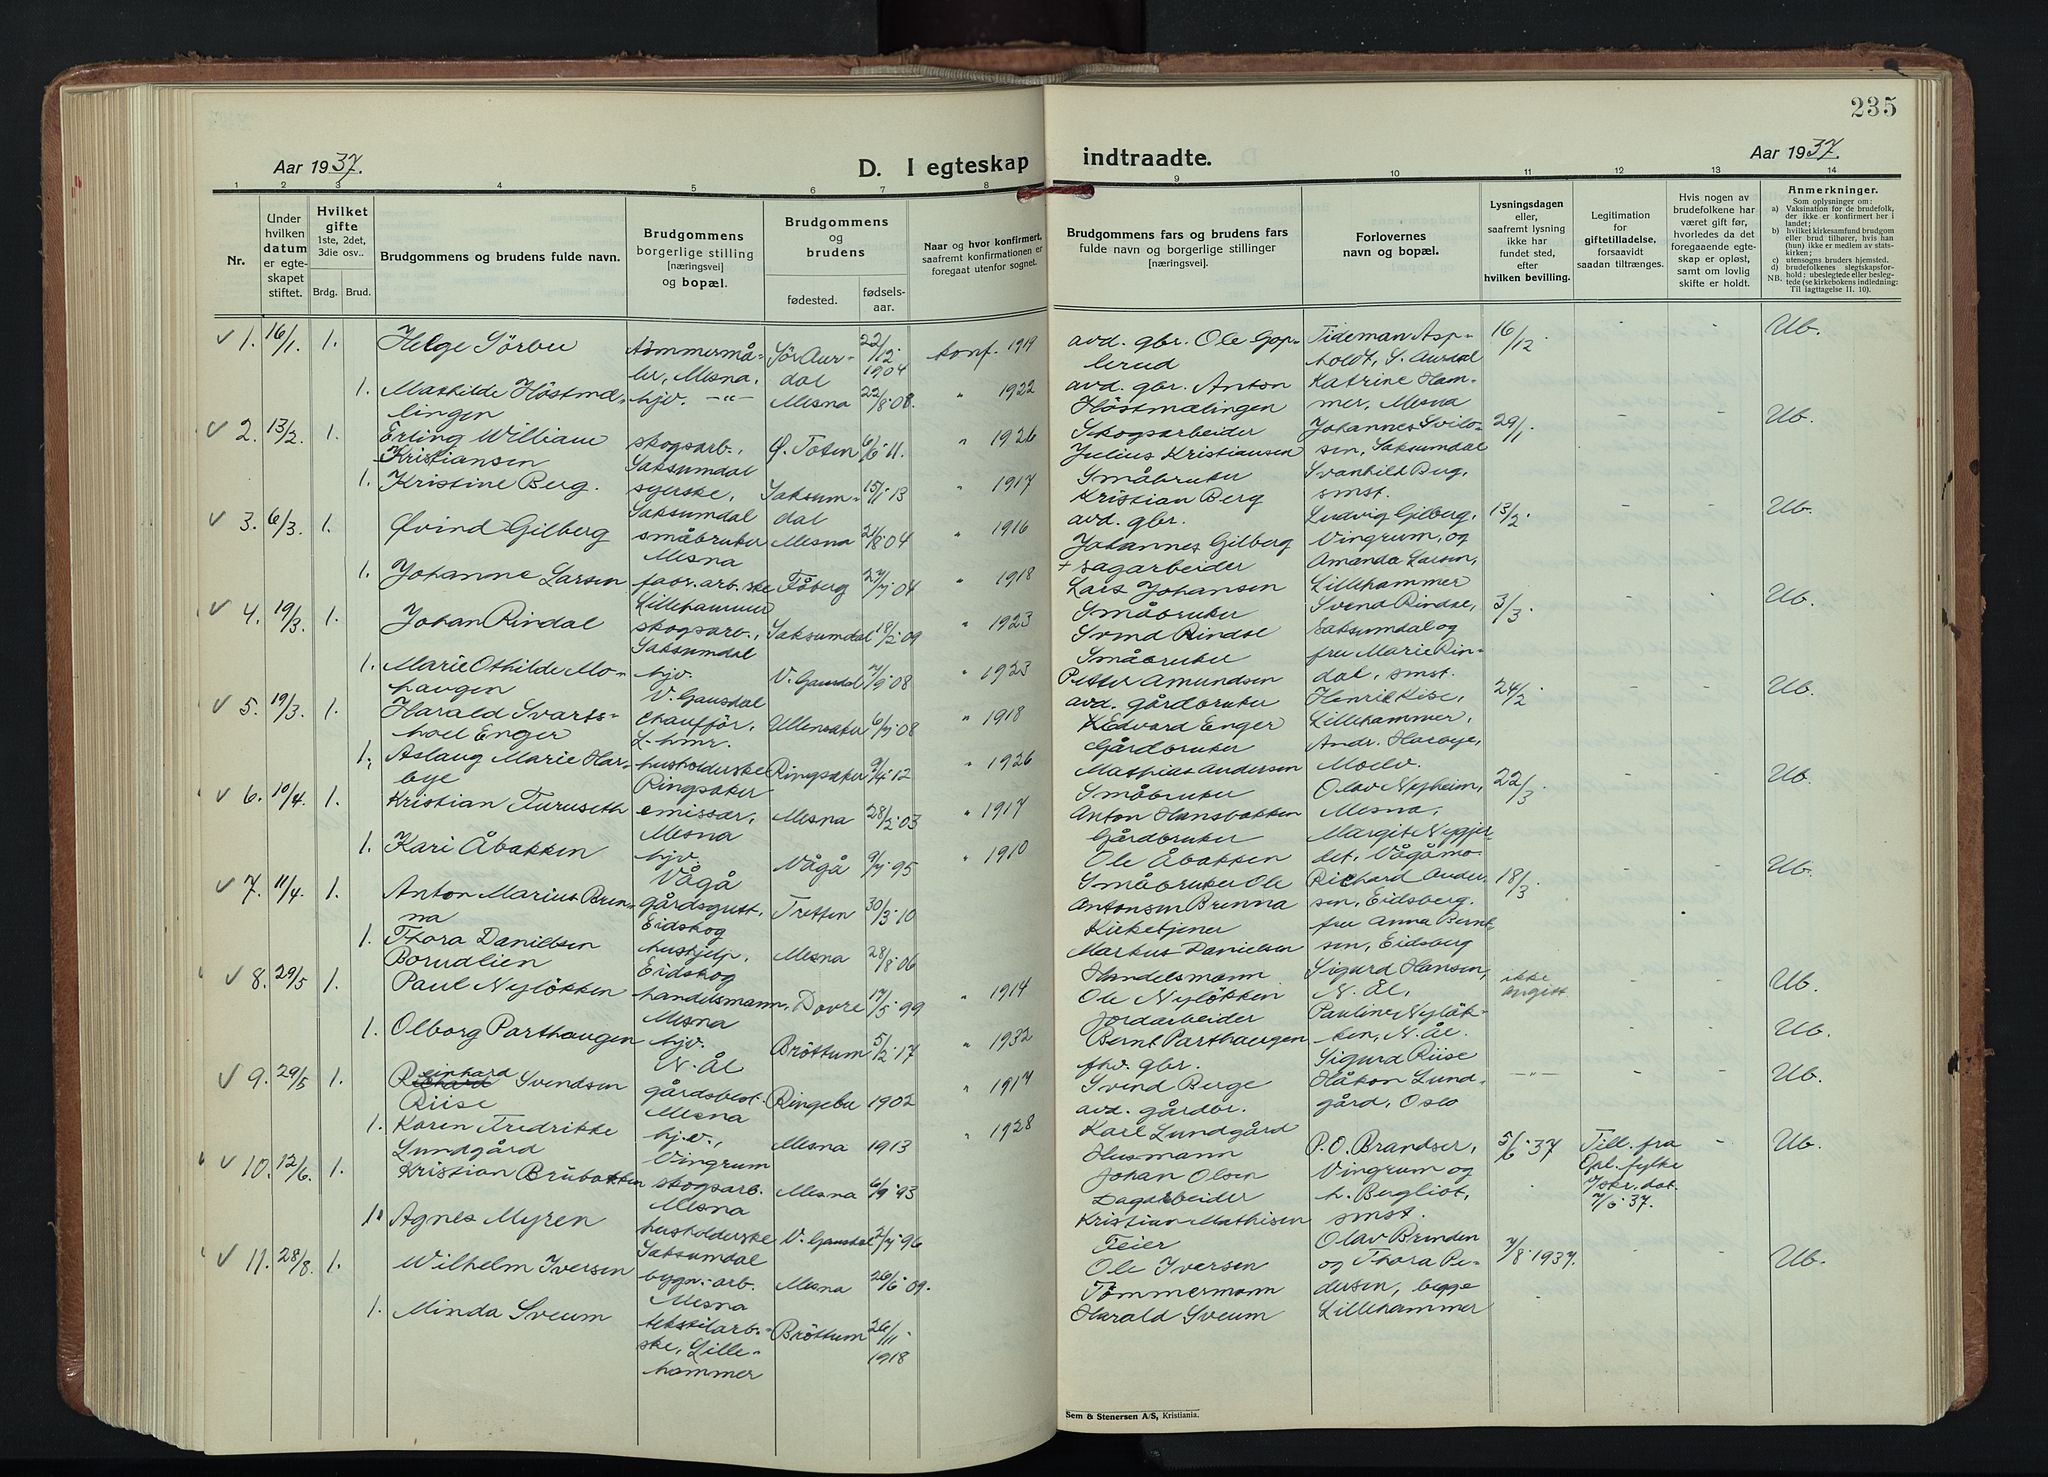 235
Aar 1937.
D. I egteskap indtraadte.
Aar 1937.
1 2 3 4 5 6 7 8 9 10 11 12 13 14
Nr.
Under hvilken datum er egteskapet stiftet.
Hvilket gifte 1ste, 2det, 3die osv..
Brdg. Brud.
Brudgommens og brudens fulde navn.
Brudgommens borgerlige stilling [næringsvei] og bopæl.
Brudgommens og brudens
fødested. fødselsaar.
Naar og hvor konfirmert, saafremt konfirmationen er foregaat utenfor sognet.
Brudgommens fars og brudens fars fulde navn og borgerlige stillinger [næringsvei].
Forlovernes navn og bopæl.
Lysningsdagen eller, saafremt lysning ikke har fundet sted, efter hvilken bevilling.
Legitimation for giftetilladelse, forsaavidt saadan tiltrænges.
Hvis nogen av brudefolkene har været gift før, hvorledes da det foregaaende egteskap er opløst, samt om lovlig skifte er holdt.
Anmerkninger.
Som oplysninger om:
a) Vaksination før de brudefolk, der ikke er konfirmert her i landet;
b) hvilket kirkesamfund brudgom eller brud tilhører, hvis han (hun) ikke er medlem av statskirken;
c) utensogns bruders hjemsted.
d) brudefolkenes slegtskapsforhold: ubeslegtede eller beslegtede (se kirkebokens indledning: NB. Til iagttagelse II. 10).
✓ 1. 16/1. 1. Helge Sörbu Tömmermåler, Mesna. Sör Aurdal 22/12 1904 konf. 1919 avd. gbr. Ole Goplerud Tideman Aspholdt, S. Aurdal 16/12 - - Ub.
1. Mathilde Höstmælingen hjv. -"- Mesna 22/8 08. " 1922 avd. gbr. Anton Höstmælingen Katrine Hammer, Mesna
✓ 2. 13/2. 1. Erling William Kristiansen skogsarb., Saksumdal Ø. Toten 6/6 11. " 1926 Skogsarbeider Julius Kristiansen Johannes Svilosen, Saksumdal 29/1. - - Ub.
1. Kristine Berg. syerske, Saksumdal Saksumdal 15/1 13 " 1917 Småbruker Kristian Berg Svanhild Berg, smst.
✓ 3. 6/3. 1. Øvind Gilberg småbruker Mesna Mesna 21/8 04 " 1916 avd. gbr. Johannes Gilberg Ludvig Gilberg, Vingrum, og 13/2. - - Ub.
1. Johanne Larsen fabr.arb.ske Lillehammer Fåberg 27/7 04 " 1918 + sagarbeider Lars Johansen Amanda Larsen, Lillehammer
✓ 4. 19/3. 1. Johan Rindal skogsarb., Saksumdal Saksumdal 18/2 09 " 1923 Småbruker Svend Rindal Svend Rindal, Saksumdal og 3/3 - - Ub.
1. Marie Othilde Mohaugen hjv. V. Gausdal V. Gausdal 7/9 08 " 1923 Småbruker Petter Amundsen fru Marie Rindal, smst.
✓ 5. 19/3. 1. Harald Svartshoel Enger chauffør, L-hmr. Ullensaker 6/7 08 " 1918 avd. gårdbruker Edvard Enger Henrik Kise, Lillehammer, 24/2 - - Ub.
1. Aslaug Marie Harbye husholderske Ringsaker Ringsaker 9/4 12 " 1926 Gårdbruker Mathias Andersen Andr. Harbye, Moelv.
✓ 6. 10/4. 1. Kristian Furuseth emissær, Mesna Mesna 28/2 03 " 1917 Småbruker Anton Hansbakken Olav Nyheim, Mesna, 22/3. - - Ub.
1. Kari Åbakken hjv. Vågå Vågå 9/7 95 " 1910 Gårdbruker Ole Åbakken Margit Nygjerdet, Vågåmo.
✓ 7. 11/4. 1. Anton Marius Brenna gårdsgutt, Eidskog Tretten 30/3 10 Småbruker Ole Antonsen Brenna Richard Andersen, Eidsberg. 18/3. - - Ub.
1. Thora Danielsen Borudlien hushjelp, Eidskog Mesna 28/8 06 Kirketjener Markus Danielsen fru Anna Berntsen, Eidsberg
✓ 8. 29/5 1. Paul Nyløkken handelsmann, Mesna Dovre 17/5 99 " 1914 Handelsmann Ole Nyløkken Sigurd Hansen, N. Ål, ikke angitt - - Ub.
1. Olborg Parthaugen hjv. N. Ål Bröttum 5/2 17 " 1932 Jordarbeider Bernt Parthaugen Pauline Nyløkken, N. Ål. - - Ub.
✓ 9. 29/5 1. Reinhard Svendsen Riise gårdsbest. Mesna Ringebu 1902 " 1917 fhv. gbr. Svend Berge Sigurd Riise -"- - - Ub.
1. Karen Fredrikke Lundgård hj.v., Vingrum Mesna 1913 " 1928 avd. gårdbr. Karl Lundgård Håkon Lundgård, Oslo
✓ 10. 12/6. 1. Kristian Brubakken skogsarb. Mesna Mesna 6/9 93 Husmann Johan Olsen P.O. Brandser, Vingrum og 5/6 37 Till. fra Opl. fylke i skr. dat. 7/6 37. - Ub.
1. Agnes Myren husholderske Saksumdal V. Gausdal 2/7 96 Dagarbeider Kristian Mathisen smst.
✓ 11. 28/8. 1. Wilhelm Iversen bygn.-arb. Mesna Mesna 26/6 09. Feier Ole Iversen Olav Brenden og Thora Pedersen, begge Lillehammer 7/8 1937. - - Ub.
1. Minda Sveum tekstilarb.ske, Lillehammer Bröttum 26/11 1918 Tömmermann Harald Sveum
Sem & Stenersen A/S, Kristiania.